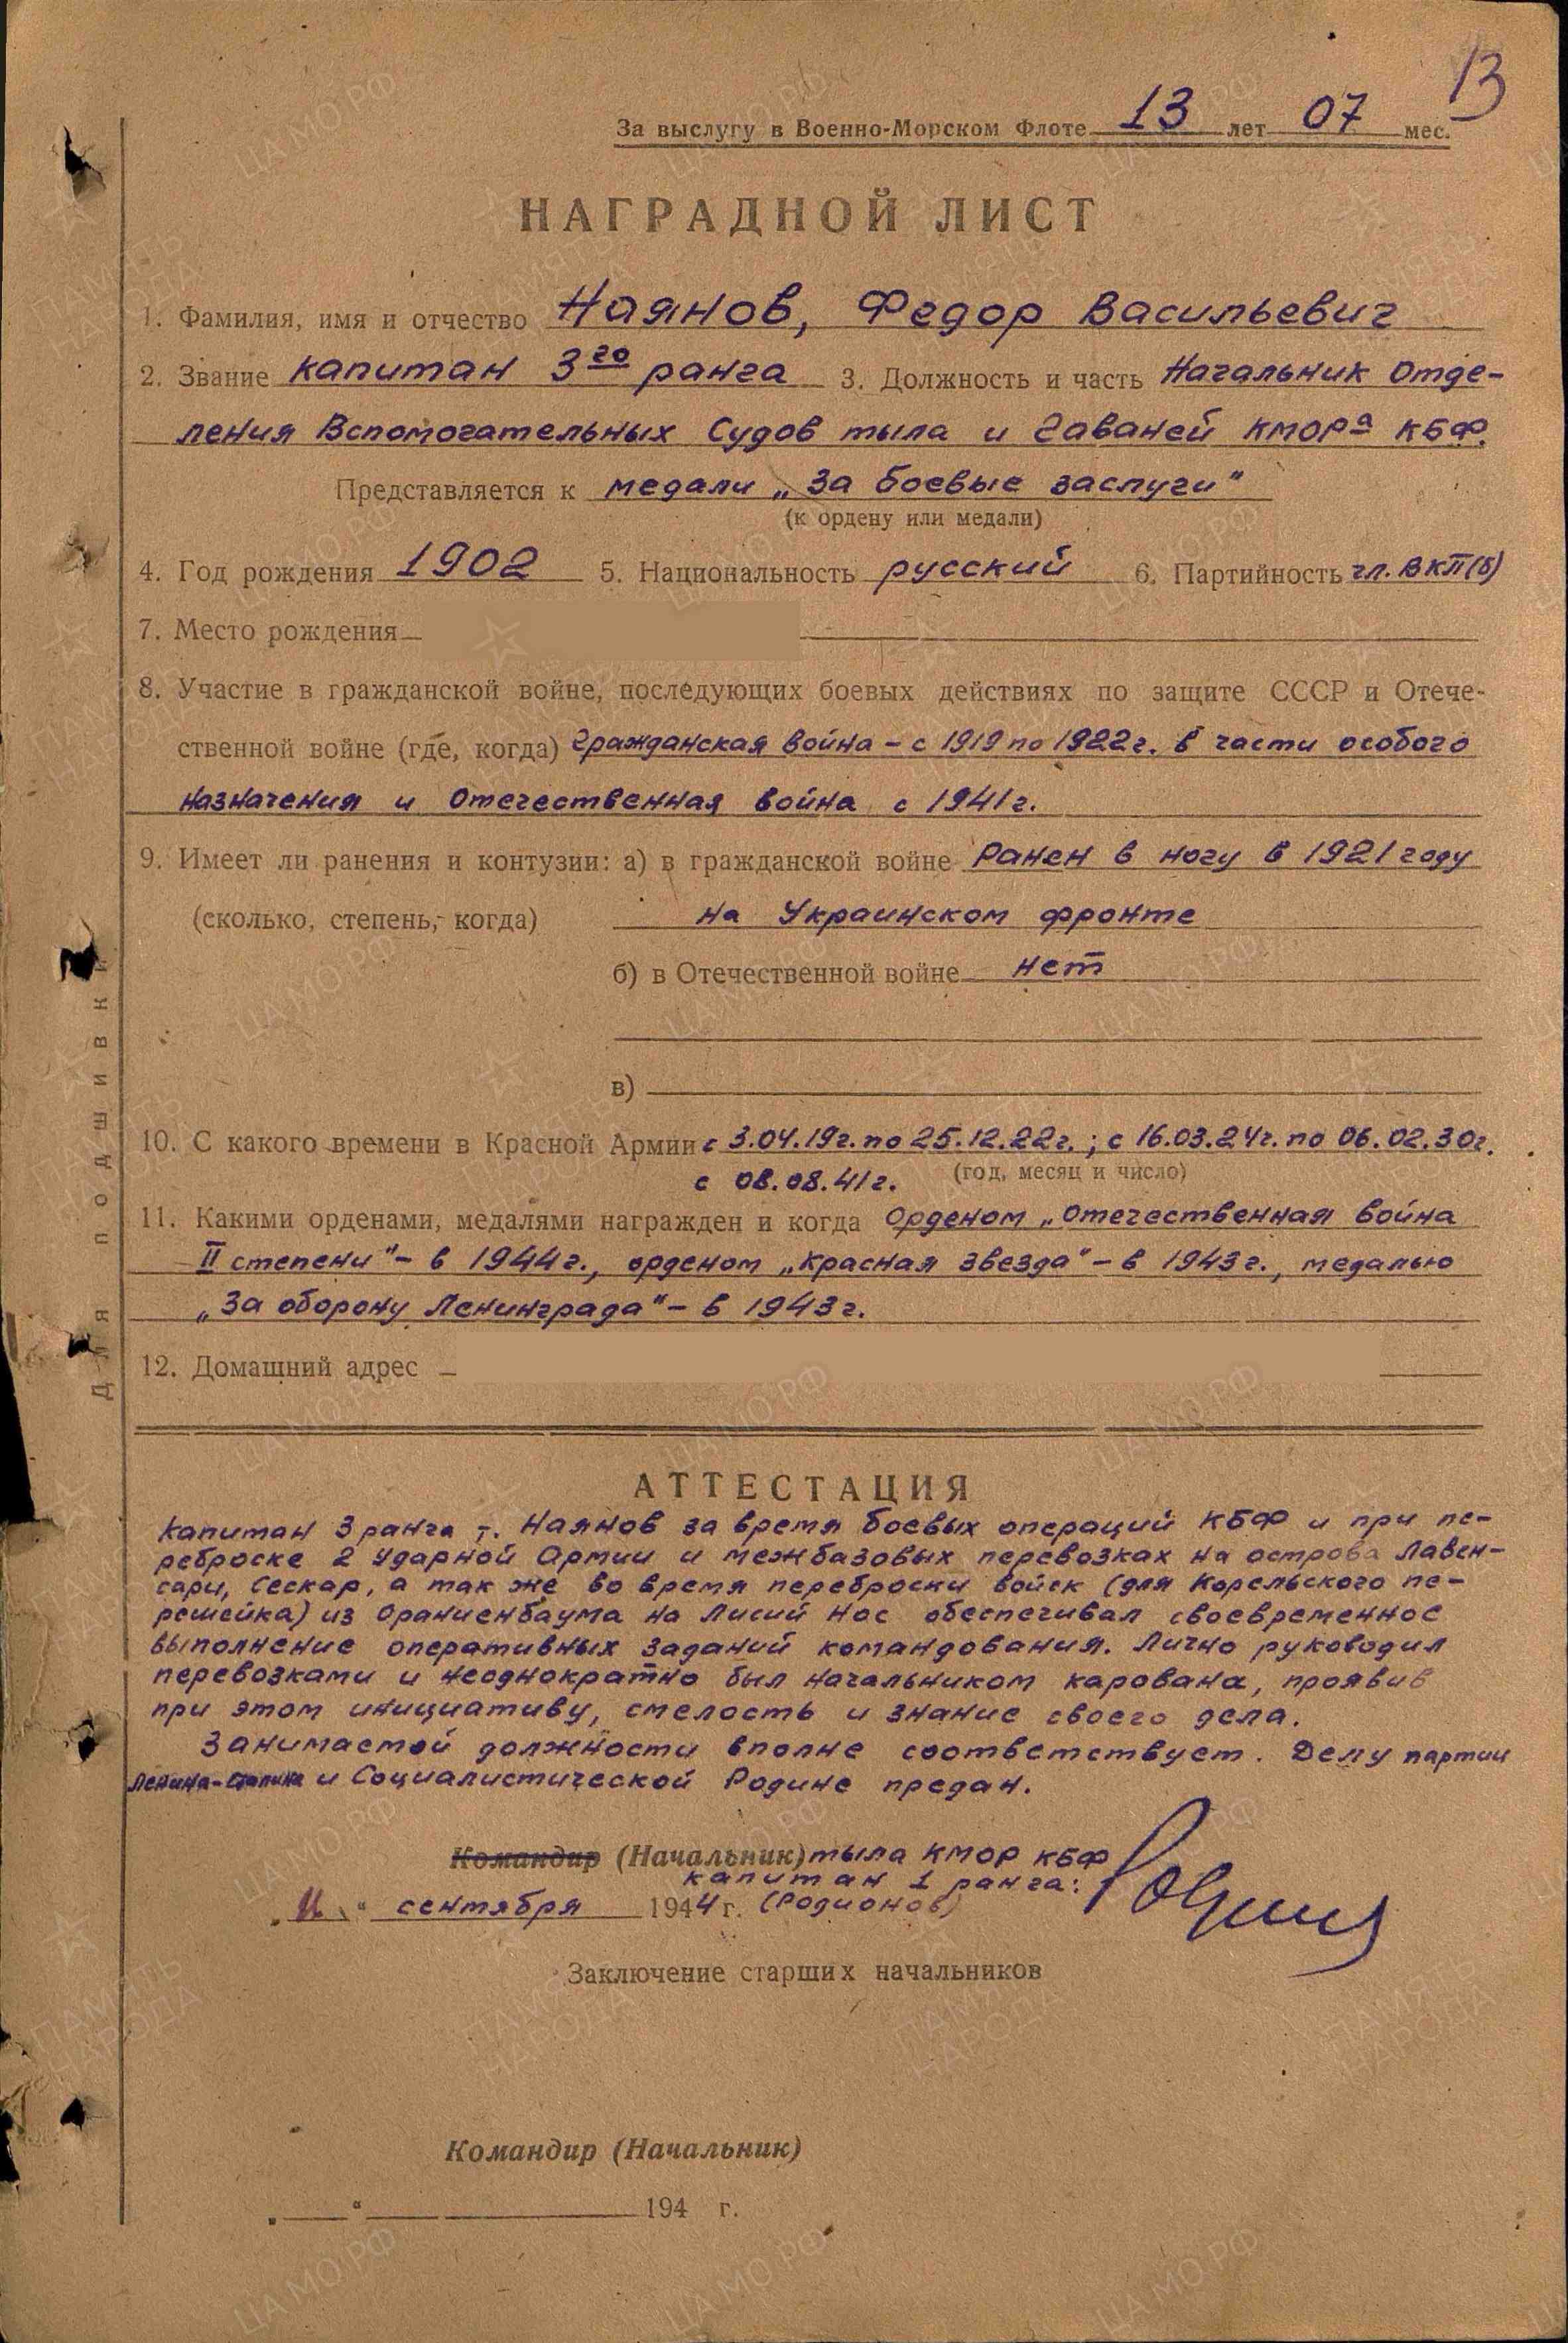 13
За выслугу в Военно-Морском Флоте 13 лет 07 мес.
НАГРАДНОЙ ЛИСТ
1. Фамилия, имя и отчество Наянов, Федор Васильевич
2. Звание капитан 3го ранга 3. Должность и часть Начальник Отде-
ления Вспомогательных Судов тыла и Гаваней КМОРа КБФ.
Представляется к медали „За боевые заслуги“
(к ордену или медали)
4. Год рождения 1902 5. Национальность русский 6. Партийность чл. ВКП(б)
7. Место рождения
8. Участие в гражданской войне, последующих боевых действиях по защите СССР и Отече-
ственной войне (где, когда) Гражданская война – с 1919 по 1922г. в части особого
назначения и Отечественная война с 1941г.
9. Имеет ли ранения и контузии: а) в гражданской войне Ранен в ногу в 1921 году
(сколько, степень, когда) на Украинском фронте
б) в Отечественной войне нет
в)
10. С какого времени в Красной Армии с 3.04.19г. по 25.12.22г.; с 16.03.24г. по 06.02.30г.
с 08.08.41г. (год, месяц и число)
11. Какими орденами, медалями награжден и когда Орденом „Отечественная война
II степени“ – в 1944г., орденом „Красная звезда“ – в 1943г., медалью
„За оборону Ленинграда“ – в 1943г.
12. Домашний адрес
Для подшивки
АТТЕСТАЦИЯ
Капитан 3 ранга т. Наянов за время боевых операций КБФ и при пе-
реброске 2 Ударной Армии и межбазовых перевозках на острова Лавен-
сари, Сескар, а так же во время переброски войск (для Корельского пе-
решейка) из Ораниенбаума на Лисий Нос обеспечивал своевременное
выполнение оперативных заданий командования. Лично руководил
перевозками и неоднократно был начальником карована, проявив
при этом инициативу, смелость и знание своего дела.
Занимаемой должности вполне соответствует. Делу партии
Ленина-Сталина и Социалистической Родине предан.
Командир (Начальник) тыла КМОР КБФ
капитан 1 ранга:
„11“ сентября 1944 г. (Родионов)
Заключение старших начальников
Командир (Начальник)
„ “ 194 г.
ЦА МО РФ
ПАМЯТЬ НАРОДА